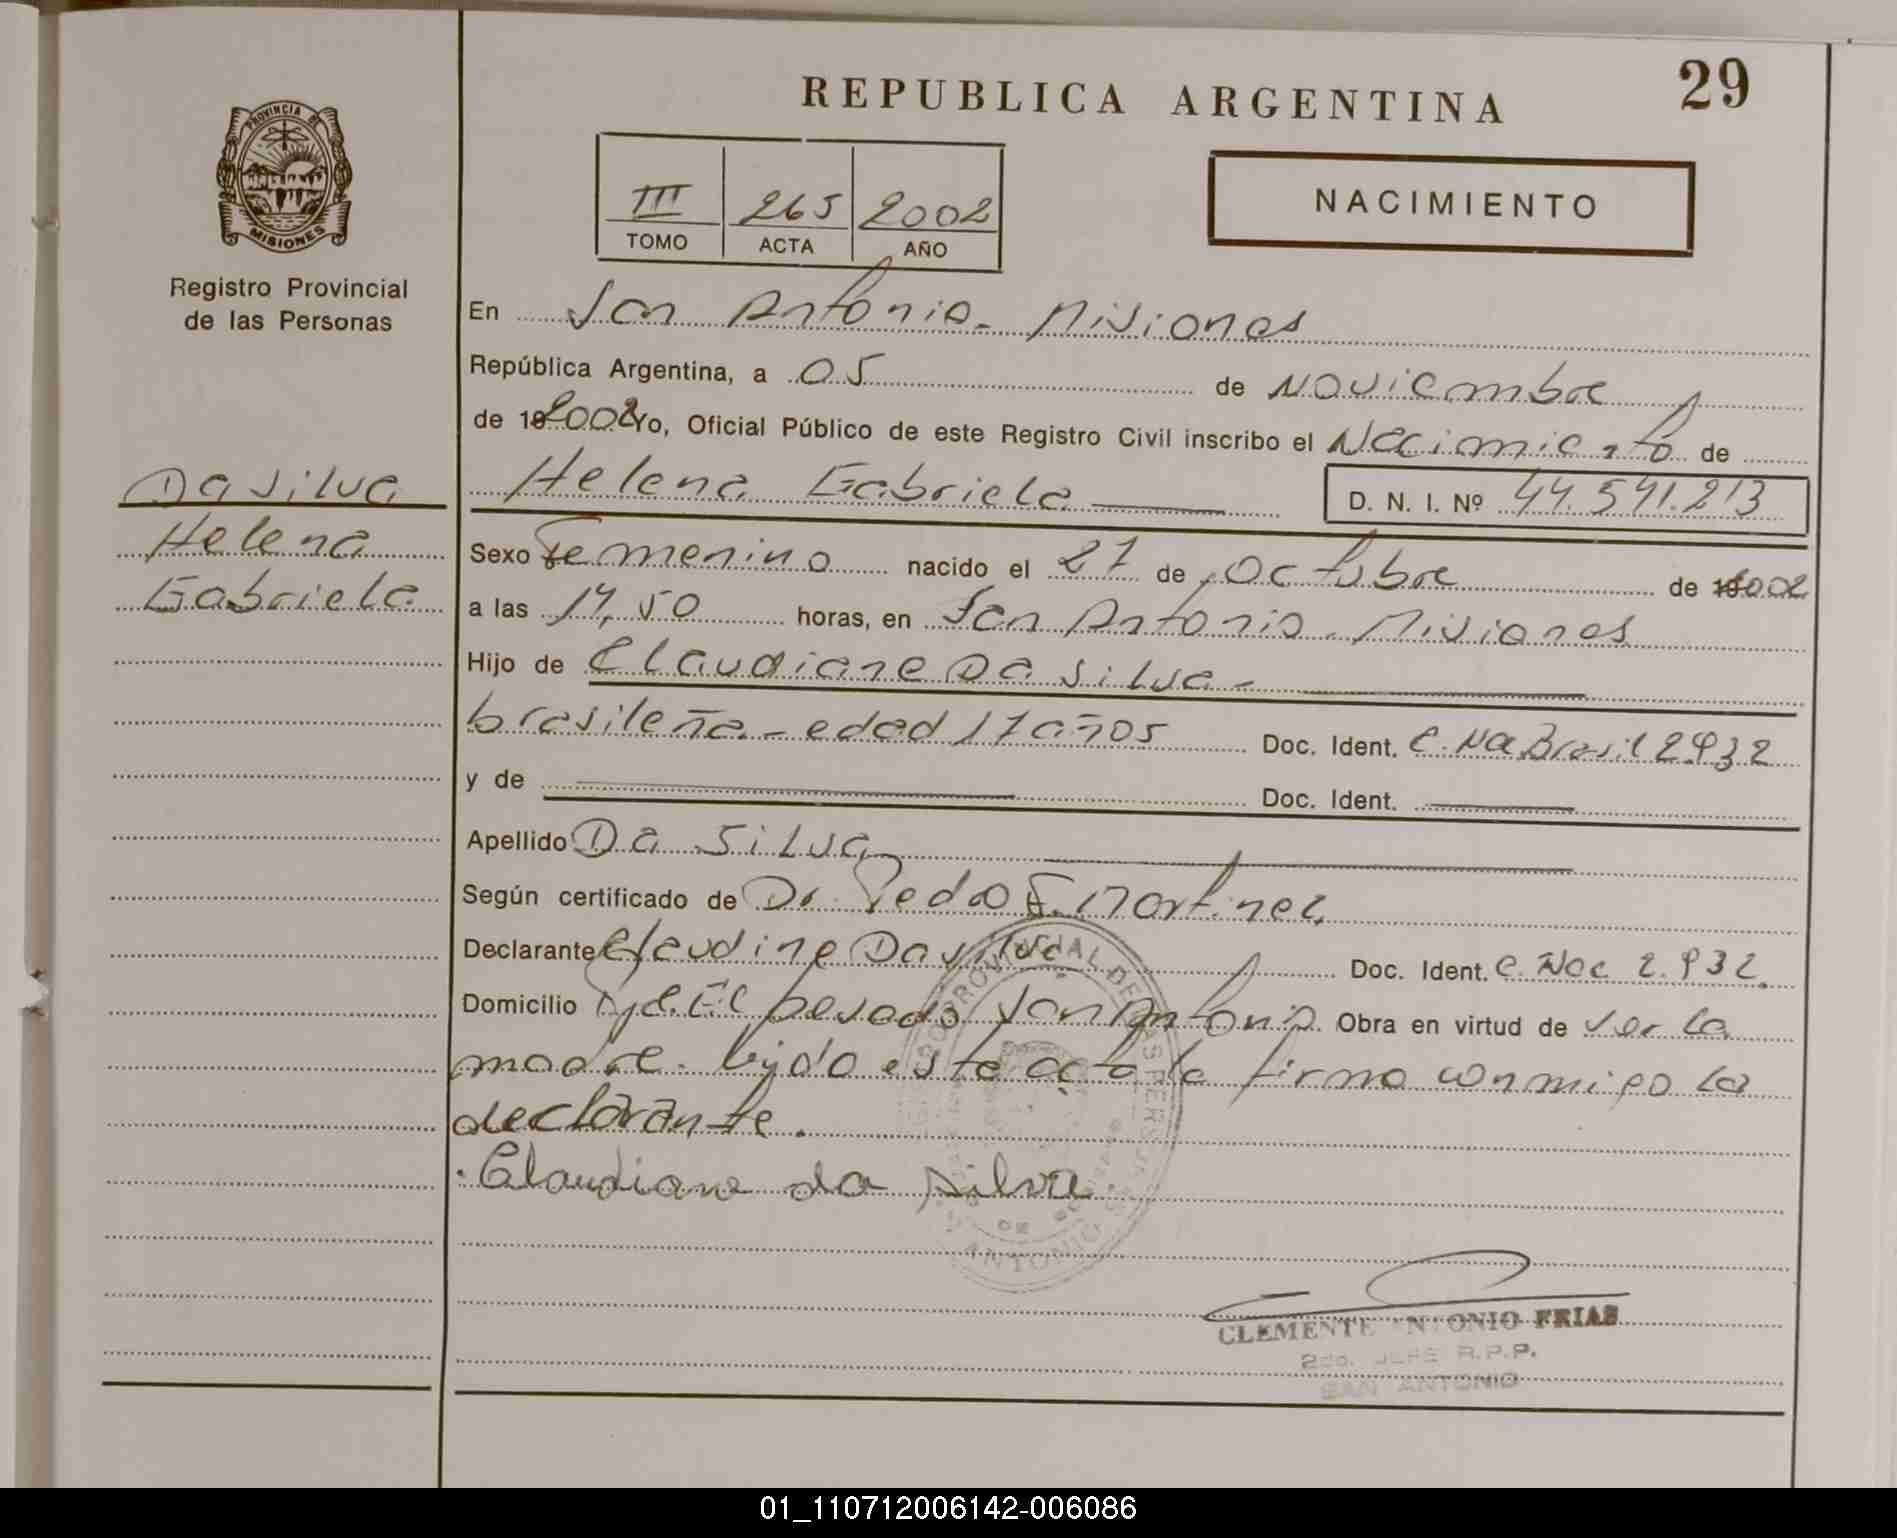 REPUBLICA ARGENTINA
29
PROVINCIA DE
MISIONES
Registro Provincial
de las Personas
III 265 2002
TOMO ACTA AÑO
NACIMIENTO
En San Antonio - Misiones
República Argentina, a 05 de Noviembre
de 19 2002 Yo, Oficial Público de este Registro Civil inscribo el Nacimiento de
Helena Gabriela D. N. I. Nº 44.541.213
Da Silva
Helena
Gabriela
Sexo Femenino nacido el 27 de Octubre de 2002
a las 14,50 horas, en San Antonio - Misiones
Hijo de Claudiane Da Silva -
brasileña - edad 17 años Doc. Ident. C. Nac Brasil 2.932
y de Doc. Ident.
Apellido Da Silva
Según certificado de Dr. Pedro E. Martinez
Declarante Claudine Da Silva Doc. Ident. C. Nac 2.932.
Domicilio Pje. El pesado San Antonio. Obra en virtud de ser la
madre. leído este acta la firma conmigo la
declarante.
Claudiane da Silva
CLEMENTE ANTONIO FRIAS
2do. JEFE R.P.P.
SAN ANTONIO
01_110712006142-006086